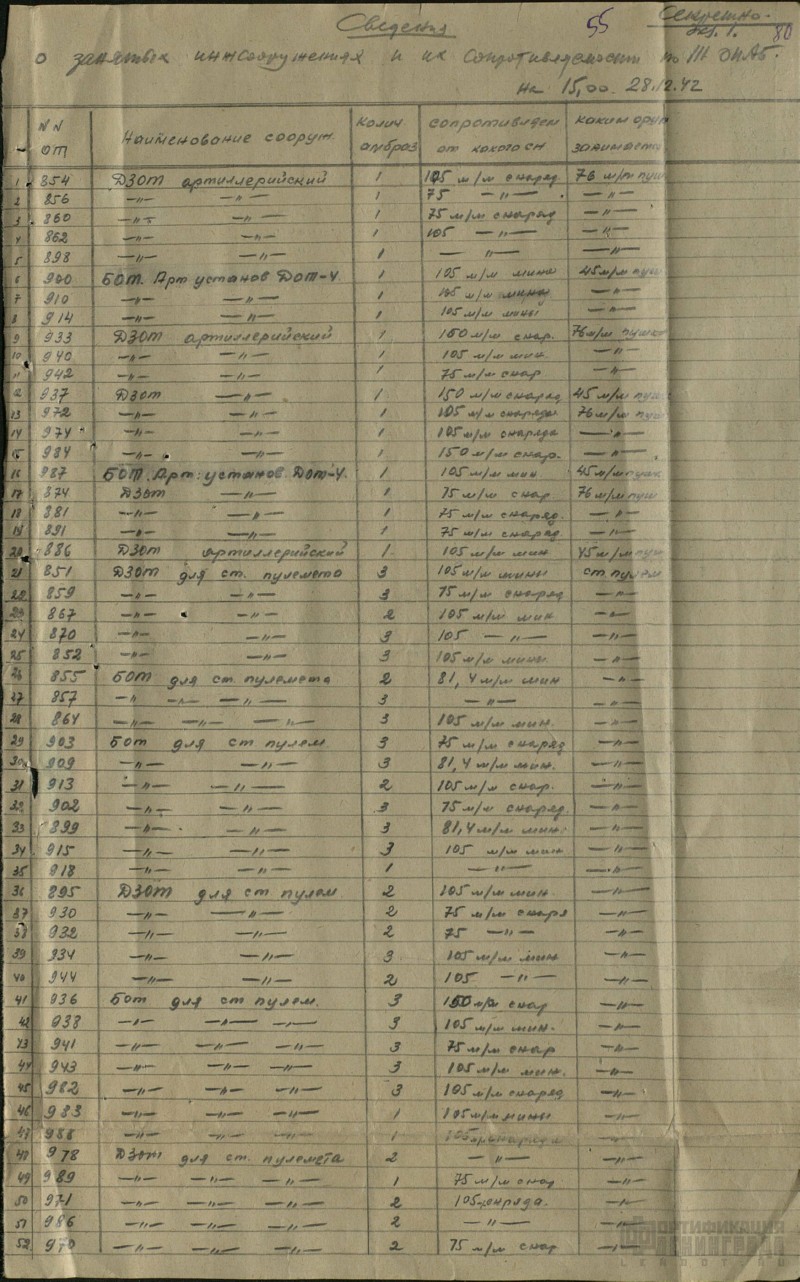 55 Секретно.
Экз. 1. 80
Сведения
о занятых инжсооружениях и их сопротивляемости по III ОПАБ.
на 15,00. 28.12.42
N N ОТ Наименование сооруж. Колич амбраз сопротивляем от какого сн каким оруж занимается
1 854 ДЗОТ артиллерийский 1 105 м/м снаряд 76 м/м пуш
2 856 —〃— —〃— 1 75 —〃— —〃—
3 860 —〃— —〃— 1 75 м/м снаряд —〃—
4 862 —〃— —〃— 1 105 —〃— —〃—
5 898 —〃— —〃— 1 —〃— —〃—
6 900 БОТ. Арт установ ДОТ-4. 1 105 м/м мина 45 м/м пуш
7 910 —〃— —〃— 1 105 м/м мины —〃—
8 914 —〃— —〃— 1 105 м/м мины —〃—
9 933 ДЗОТ артиллерийский 1 150 м/м снар. 76 м/м пушк
10 940 —〃— —〃— 1 105 м/м мин. —〃—
11 942 —〃— —〃— 1 75 м/м снар —〃—
12 937 ДЗОТ —〃— 1 150 м/м снаряд 45 м/м пуш
13 972 —〃— —〃— 1 105 м/м снаряда 76 м/м пуш
14 974 —〃— —〃— 1 105 м/м снаряда —〃—
15 984 —〃— —〃— 1 150 м/м снар. —〃—
16 987 БОТ. Арт. установ. ДОТ-4. 1 105 м/м мин 45 м/м пуш
17 874 ДЗОТ —〃— 1 75 м/м снар 76 м/м пуш
18 881 —〃— —〃— 1 75 м/м снаряд. —〃—
19 891 —〃— —〃— 1 75 м/м снаряд. —〃—
20 886 ДЗОТ артиллерийский 1 105 м/м мин. 45 м/м пуш
21 851 ДЗОТ для ст. пулемета 3 105 м/м мины ст. пулем
22 859 —〃— —〃— 3 75 м/м снаряд —〃—
23 867 —〃— —〃— 2 105 м/м мин —〃—
24 870 —〃— —〃— 3 105 —〃— —〃—
25 852 —〃— —〃— 3 105 м/м мины —〃—
26 855 БОТ для ст. пулемета 2 81,4 м/м мин —〃—
27 857 —〃— —〃— —〃— 3 —〃— —〃—
28 864 —〃— —〃— —〃— 3 105 м/м мин. —〃—
29 903 Бот для ст пулем 3 75 м/м снаряд —〃—
30 909 —〃— —〃— 3 81,4 м/м мин. —〃—
31 913 —〃— —〃— 2 105 м/м снар. —〃—
32 902 —〃— —〃— 3 75 м/м снаряд. —〃—
33 899 —〃— —〃— 3 81,4 м/м мин. —〃—
34 915 —〃— —〃— 3 105 м/м мин —〃—
35 918 —〃— —〃— 1 —〃— —〃—
36 895 ДЗОТ для ст пулем 2 105 м/м мин. —〃—
37 930 —〃— —〃— 2 75 м/м снаря —〃—
38 932 —〃— —〃— 2 75 —〃— —〃—
39 934 —〃— —〃— 3 105 м/м мин —〃—
40 944 —〃— —〃— 2 105 —〃— —〃—
41 936 Бот для ст пулем. 3 150 м/м снар —〃—
42 938 —〃— —〃— —〃— 3 105 м/м мин. —〃—
43 941 —〃— —〃— —〃— 3 75 м/м снар —〃—
44 943 —〃— —〃— —〃— 3 105 м/м мин. —〃—
45 982 —〃— —〃— —〃— 3 105 м/м снаряд —〃—
46 983 —〃— —〃— —〃— 1 105 м/м мины —〃—
47 988 —〃— —〃— —〃— 1 105 —〃—
48 978 ДЗОТ для ст. пулемета 2 —〃— —〃—
49 989 —〃— —〃— —〃— 1 75 м/м снар —〃—
50 971 —〃— —〃— —〃— 2 105 —〃—
51 986 —〃— —〃— —〃— 2 —〃— —〃—
52 970 —〃— —〃— —〃— 2 75 м/м снар —〃—
ФОРТИФИКАЦИЯ
ЛЕНИНГРАД
LENDOT.RU